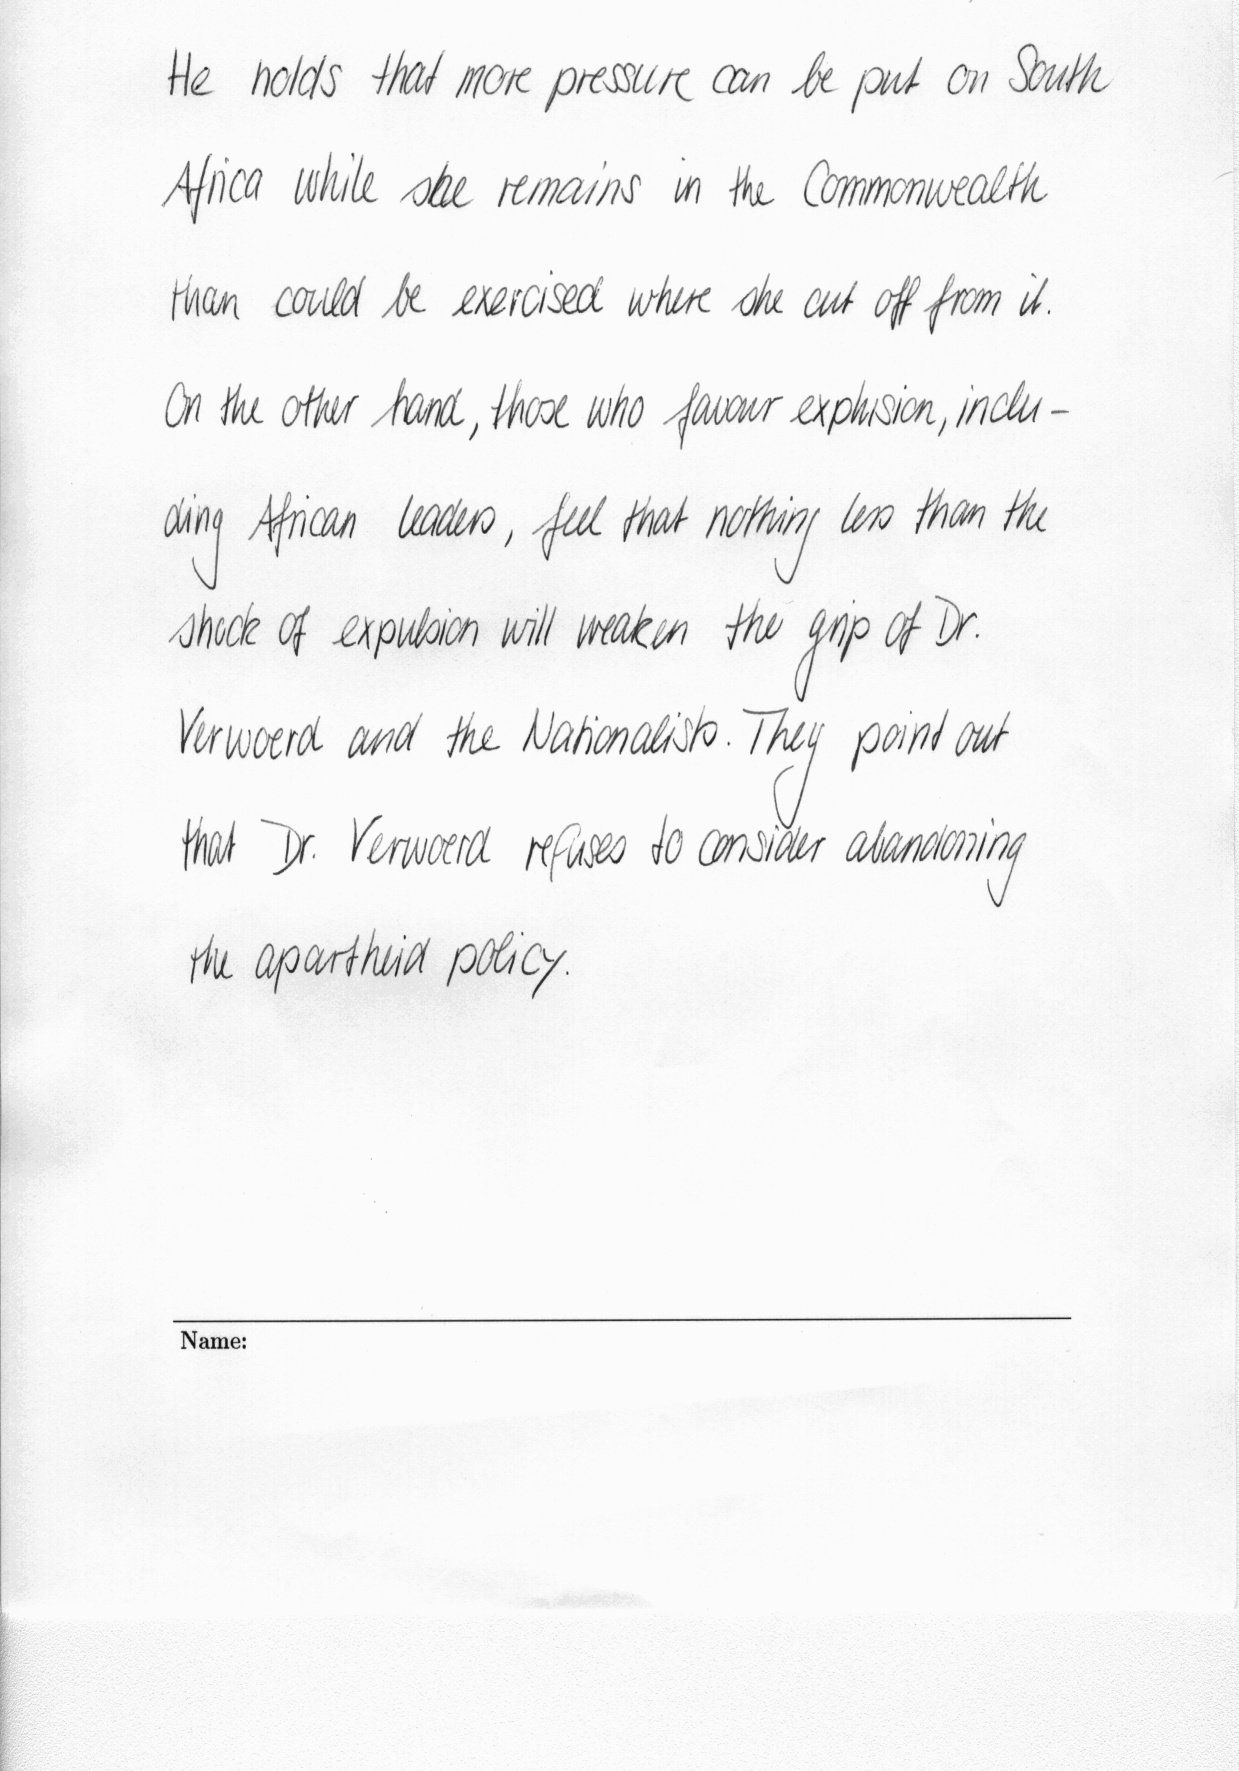 He holds that more pressure can be put on South
Africa while she remains in the Commonwealth
than could be exercised where she cut off from it.
On the other hand, those who favour explusion, inclu-
ding African leaders, feel that nothing less than the
shock of expulsion will weaken the grip of Dr.
Verwoerd and the Nationalists. They point out
that Dr. Verwoerd refuses to consider abandoning
the apartheid policy.
Name: